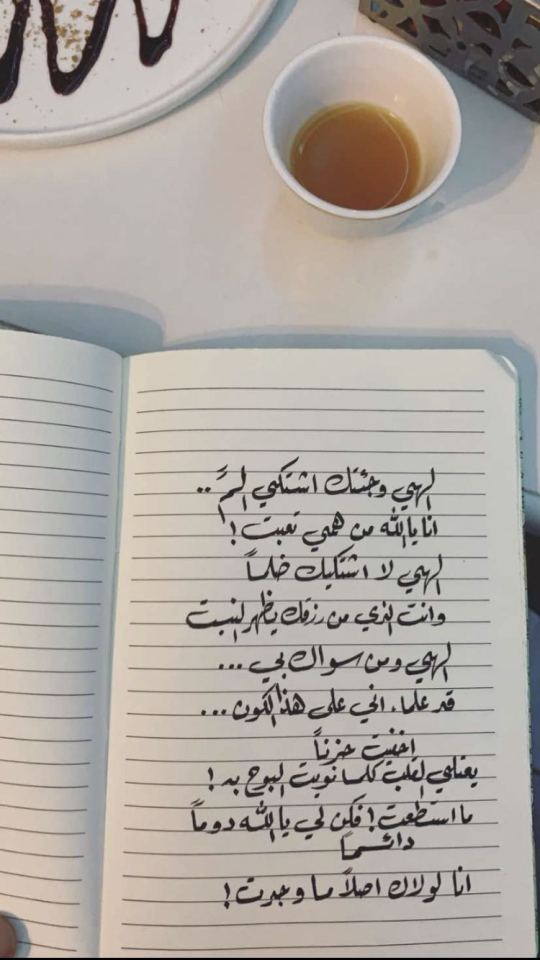 الهي وجئتك اشتكي الماً..
انا يا الله من همي تعبت!
الهي لا اشتكيك ظلماً
وانت الذي من رزقك يظهر النبت
الهي ومن سواك بي...
قد علماء اني على هذا الكون...
اخفيت حزناً
يعتلي القلب كلما نويت البوح به!
ما استطعت! فكن لي يا الله دوماً
دائماً
انا لولاك اصلاً ما وجدت!